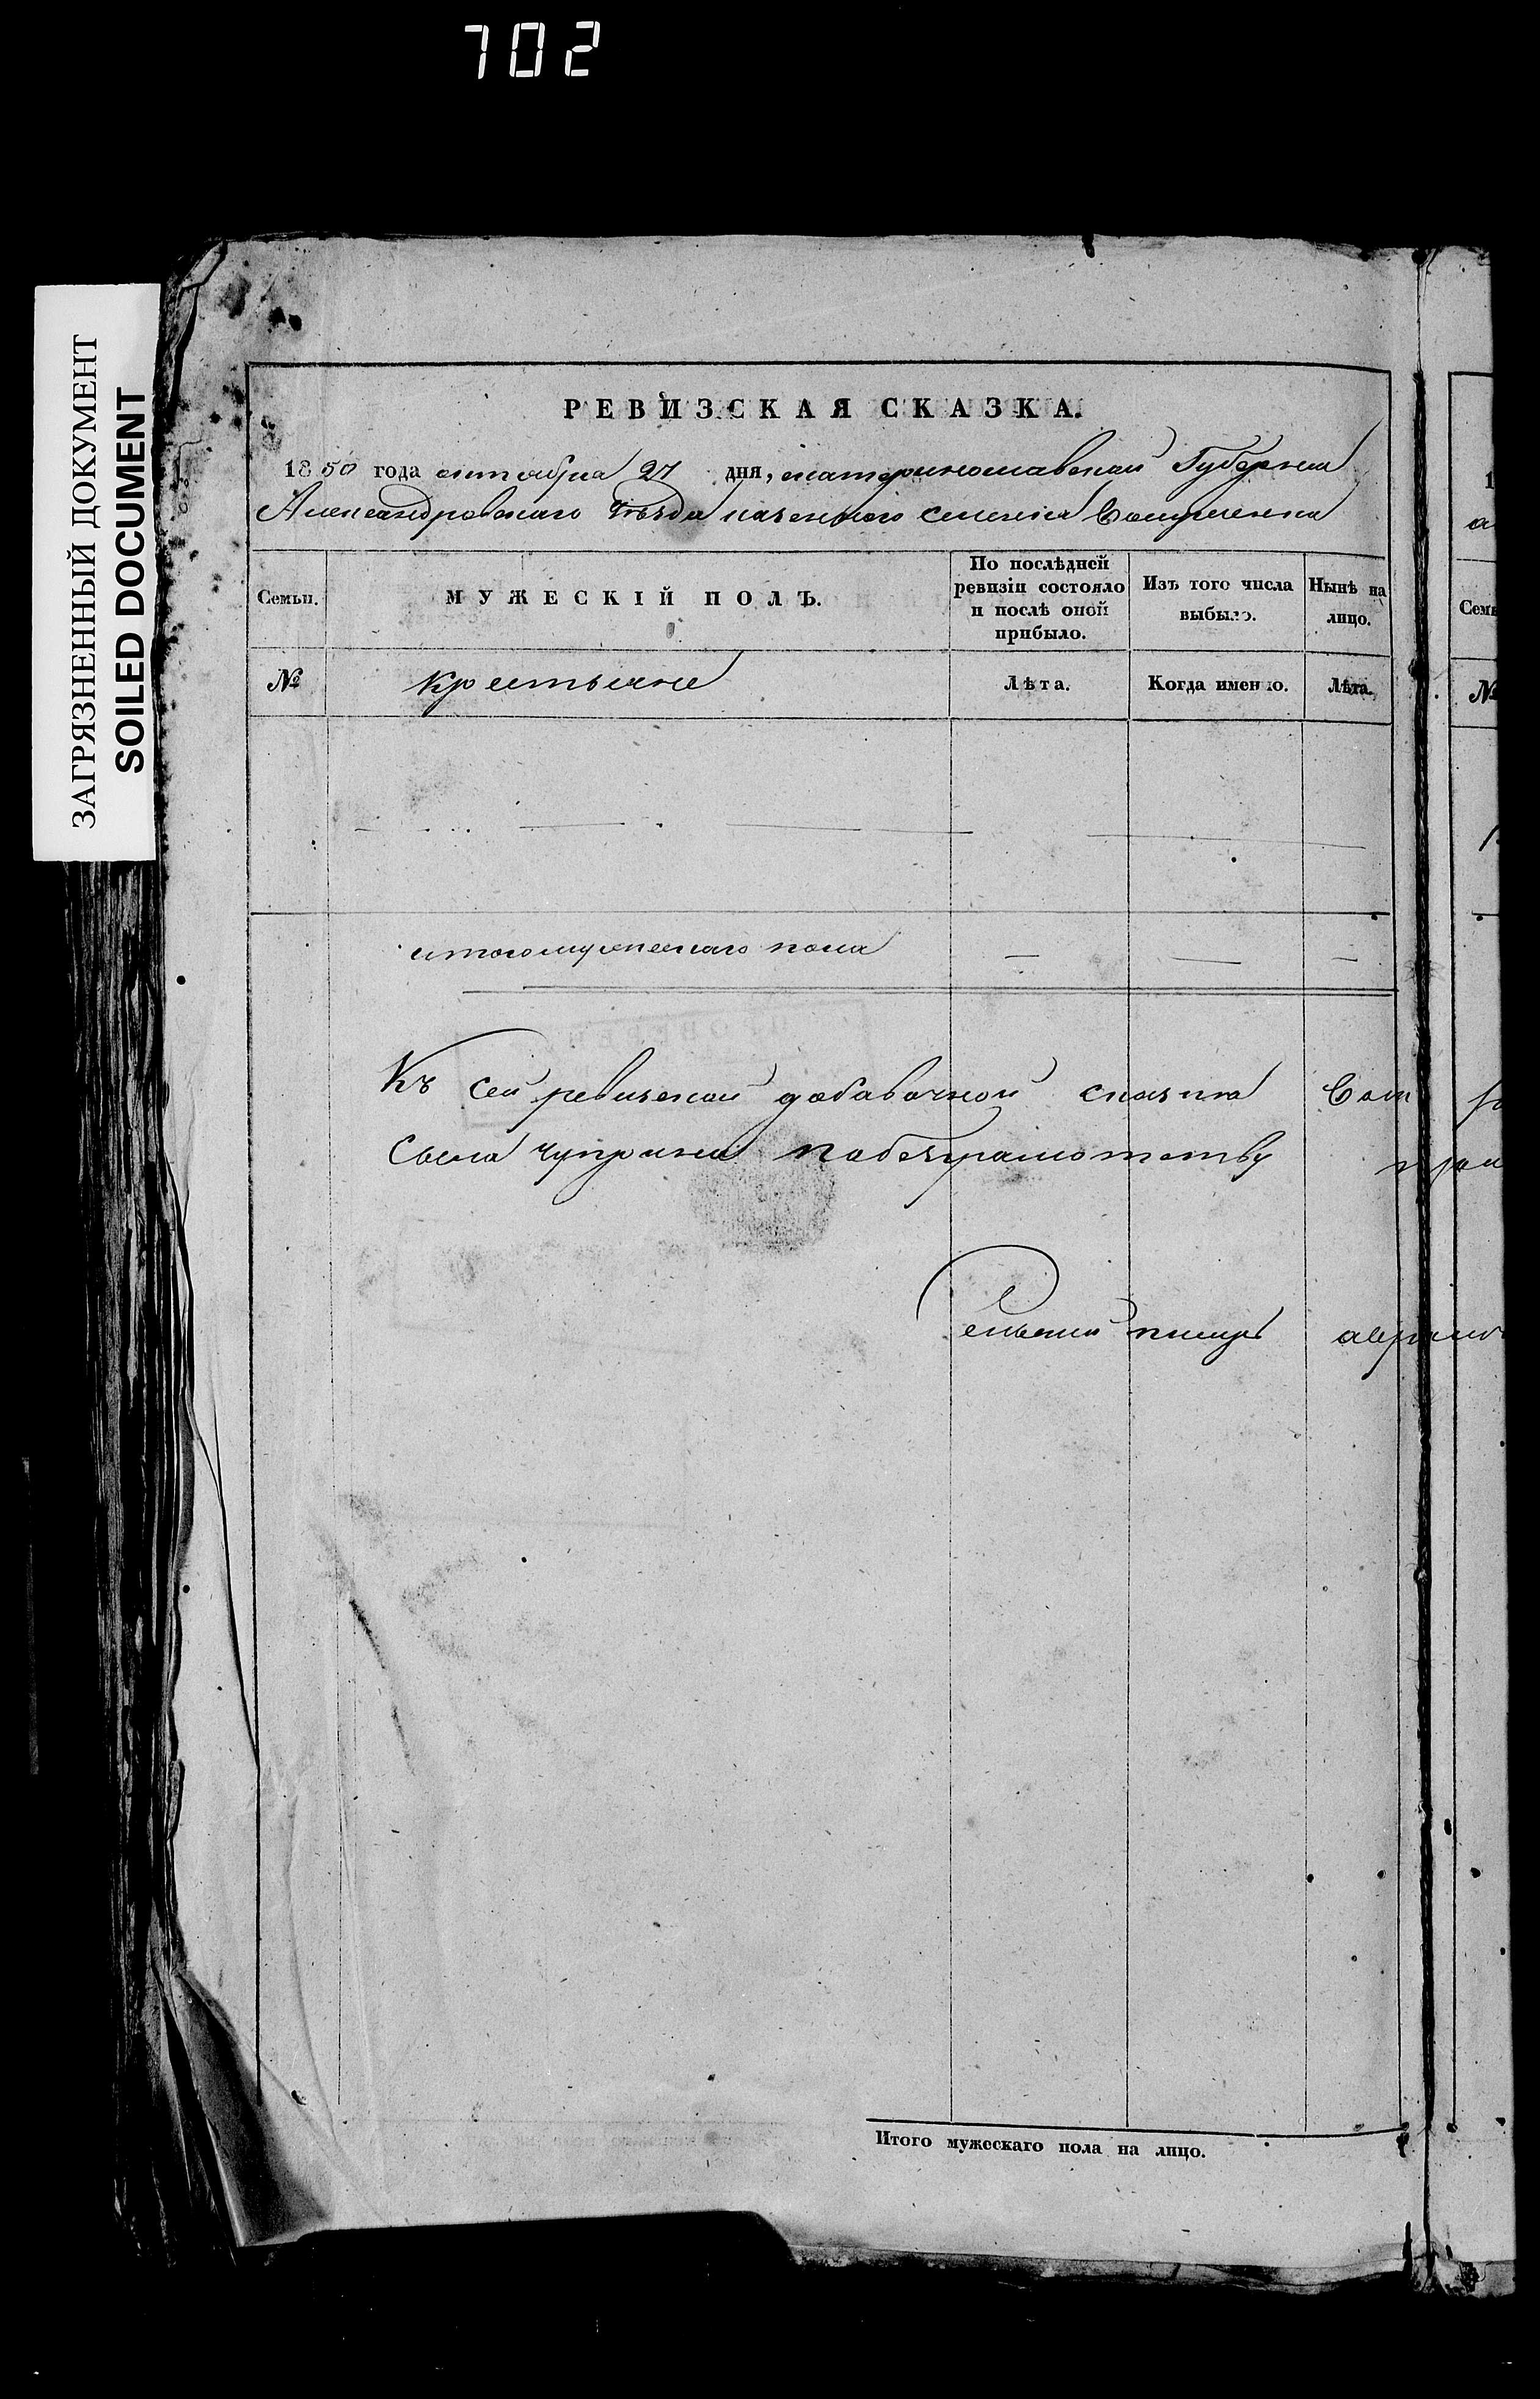 702
ЗАГРЯЗНЕННЫЙ ДОКУМЕНТ
SOILED DOCUMENT
РЕВИЗСКАЯ СКАЗКА.
1850 года октября 27 дня, екатеринославской Губернии
Александровскаго уѣзда казеннаго селенія
Семьи.
МУЖЕСКІЙ ПОЛЪ.
По послѣдней ревизіи состояло и послѣ оной прибыло.
Изъ того числа выбыло.
Нынѣ на лицо.
№
крестьяне
Лѣта.
Когда именно.
Лѣта.
итого мужескаго пола
Къ сей ревизской добавочной сказки
Савла Чуприна по безграмотству
Сельскій писарь
Итого мужескаго пола на лицо.
Семь
№